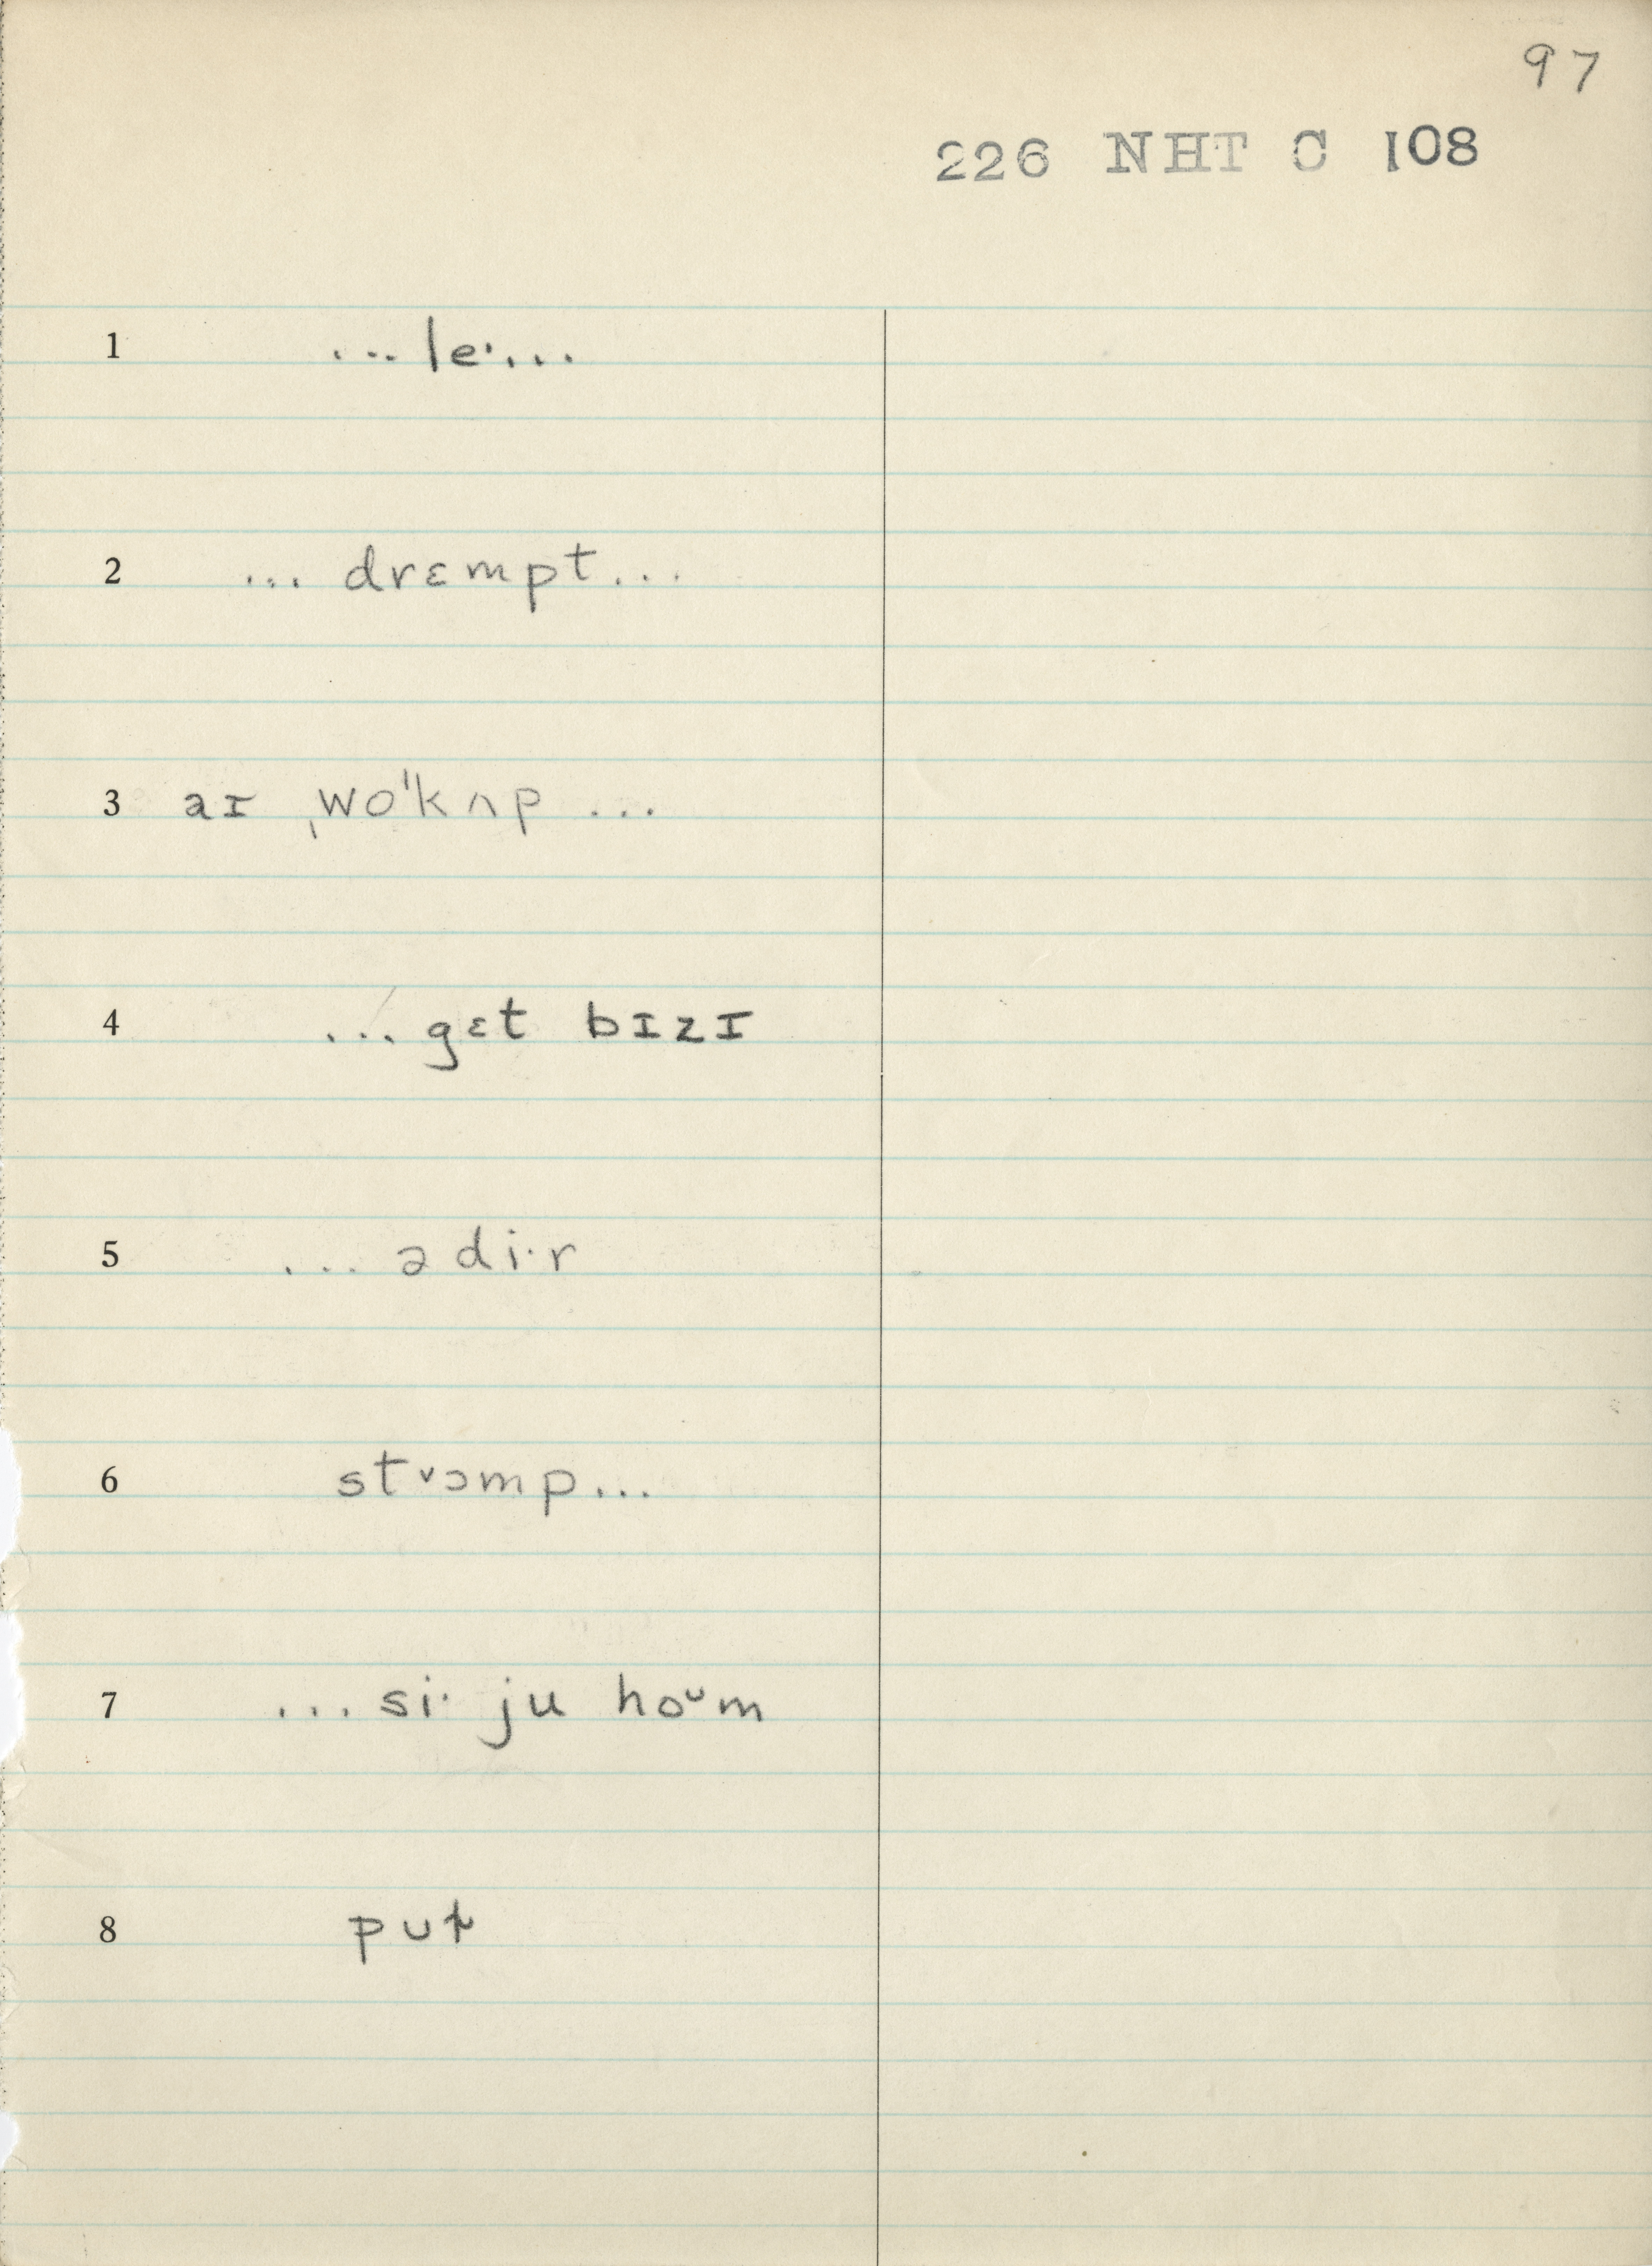 97
226 NHT C 108
1 ... le· ...
2 ... drɛmpt ...
3 aɪ ˌwo'kʌp ...
4 ... gɛt bɪzɪ
5 ... ə di·r
6 stᵛɔmp ...
7 ... si· ju hoᵘm
8 pʊt̬